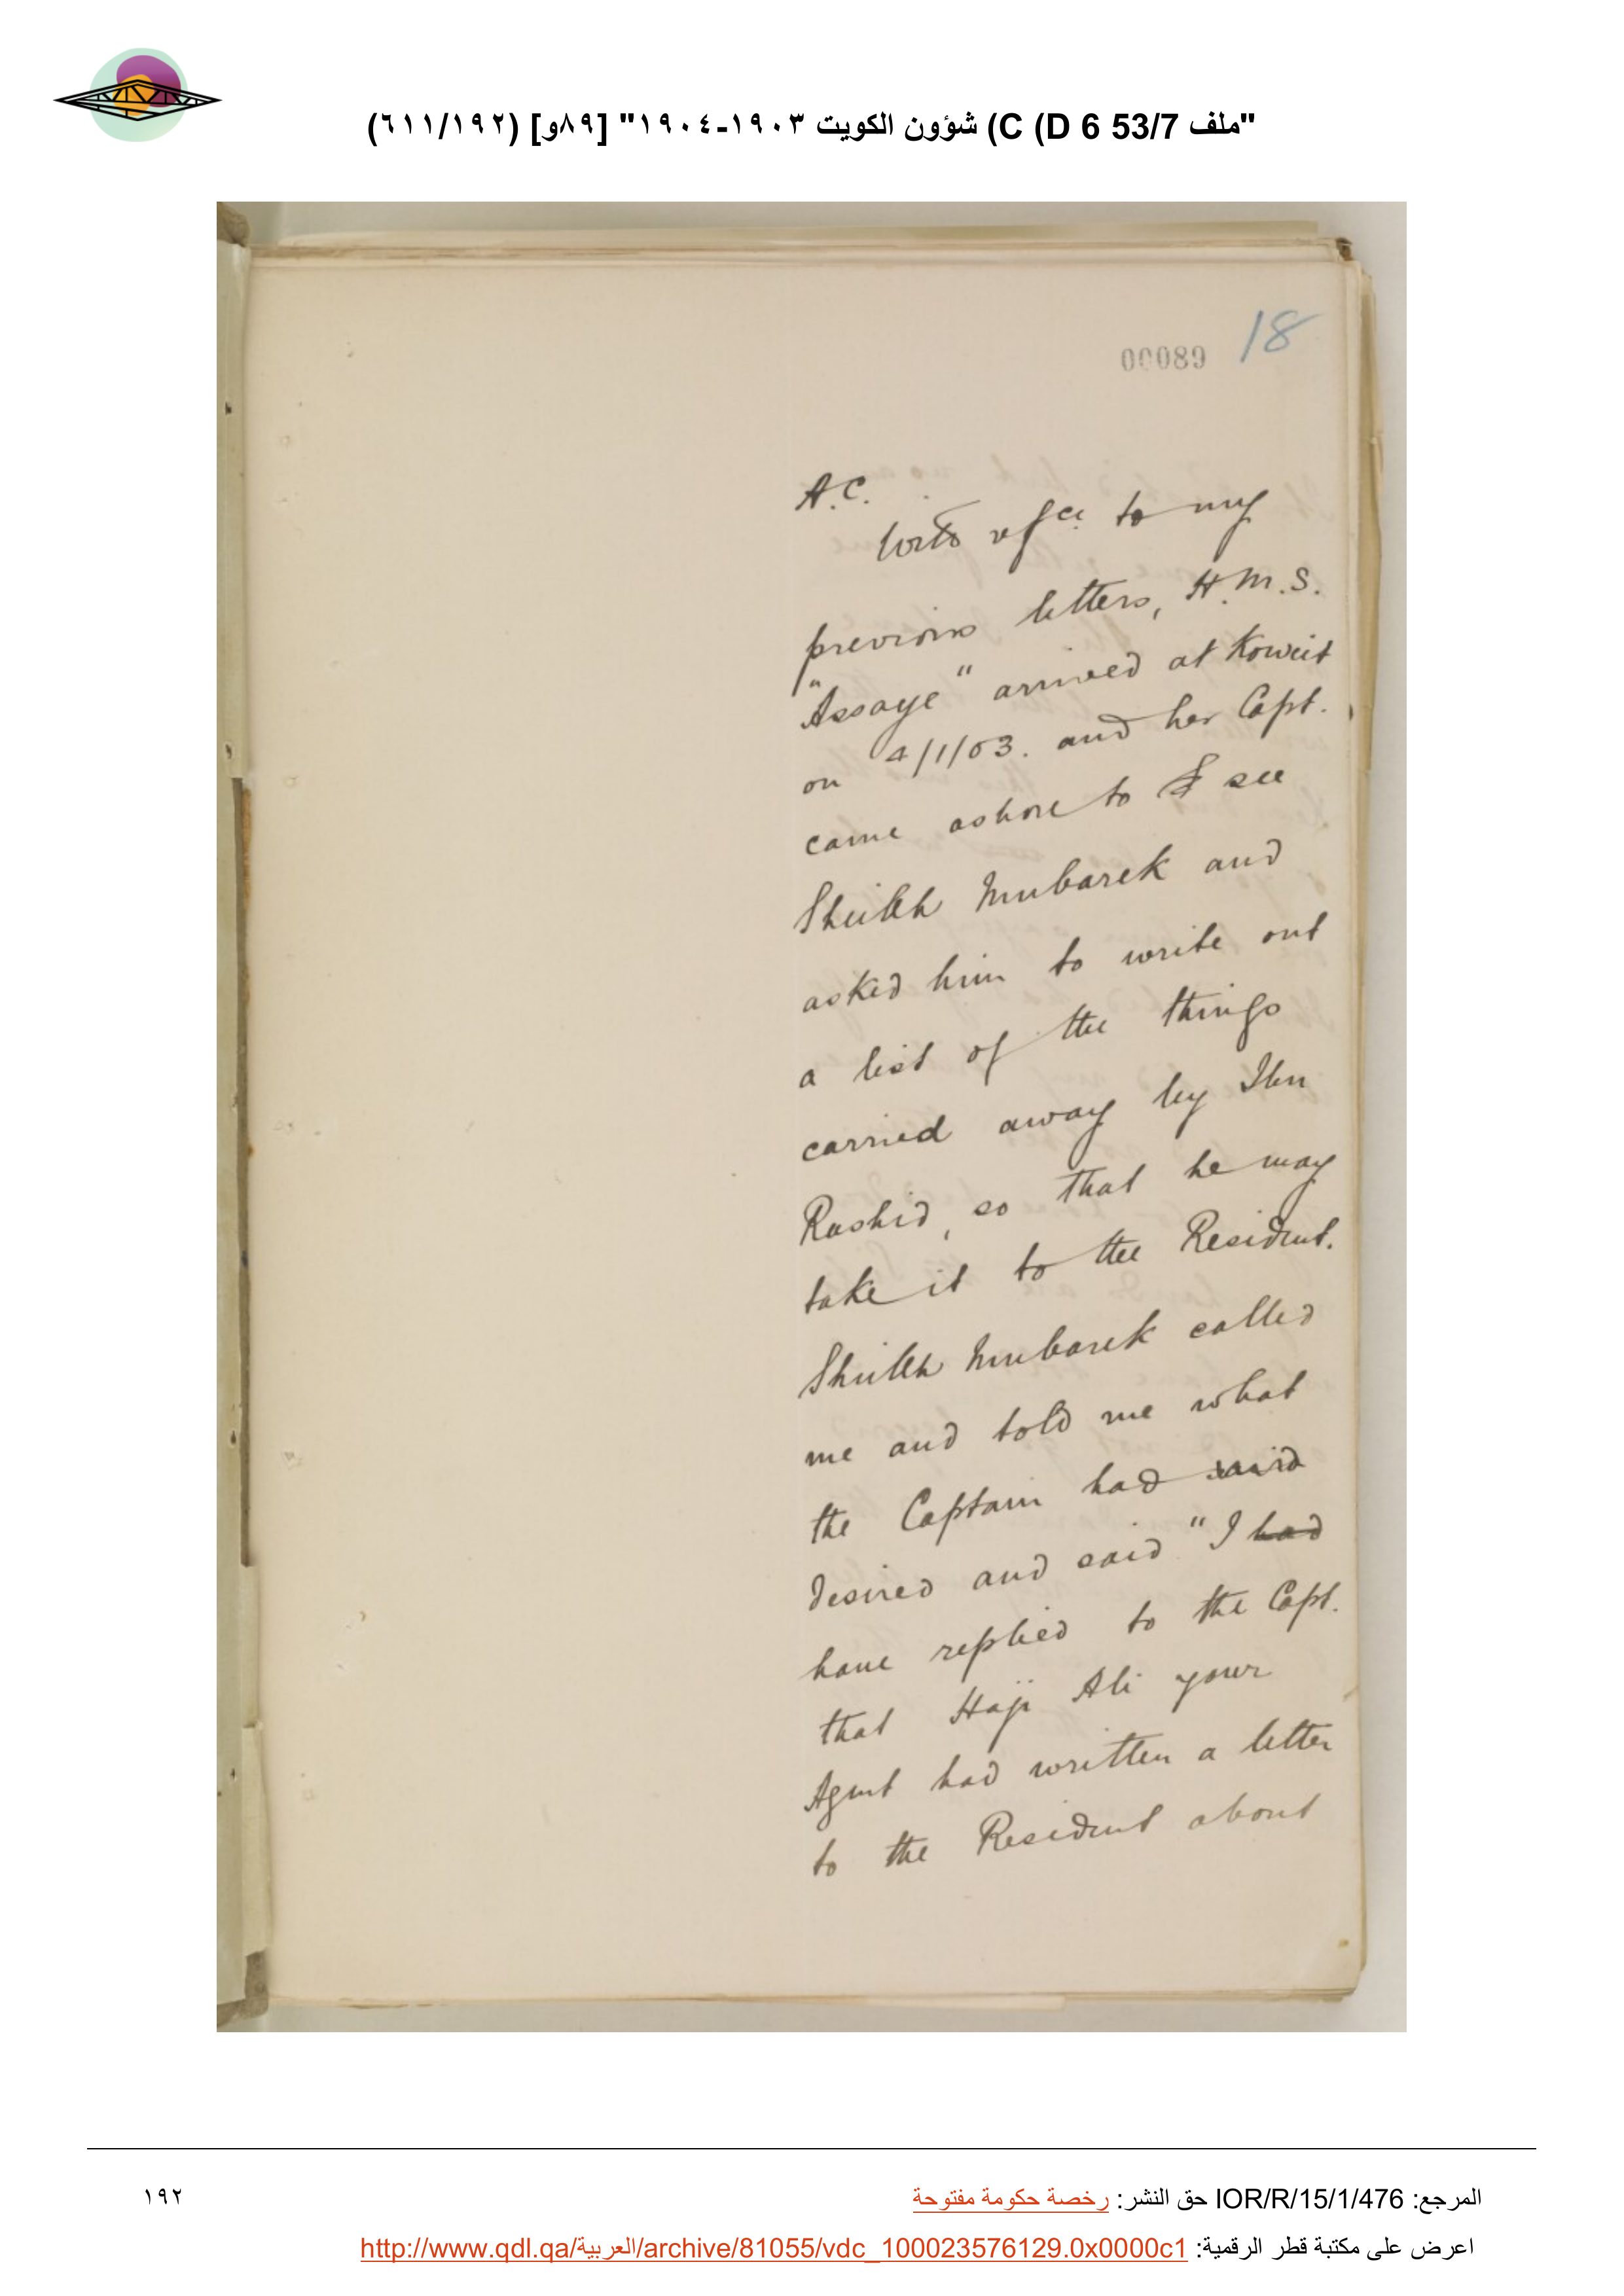 "ملف 53/7 C (D 6) شؤون الكويت ١٩٠٣-١٩٠٤" [٨٩و] (٦١١/١٩٢)
00089 18
A.C.
With refce to my
previous letters, H.M.S.
"Assaye" arrived at Koweit
on 4/1/03. and her Capt.
came ashore to see
Sheikh Mubarek and
asked him to write out
a list of the things
carried away by Ibn
Rashid, so that he may
take it to the Resident.
Sheikh Mubarek called
me and told me what
the Captain had said
desired and said "I had
have replied to the Capt.
that Haji Ali your
Agent had written a letter
to the Resident about
المرجع: IOR/R/15/1/476 حق النشر: رخصة حكومة مفتوحة
١٩٢
اعرض على مكتبة قطر الرقمية: http://www.qdl.qa/العربية/archive/81055/vdc_100023576129.0x0000c1